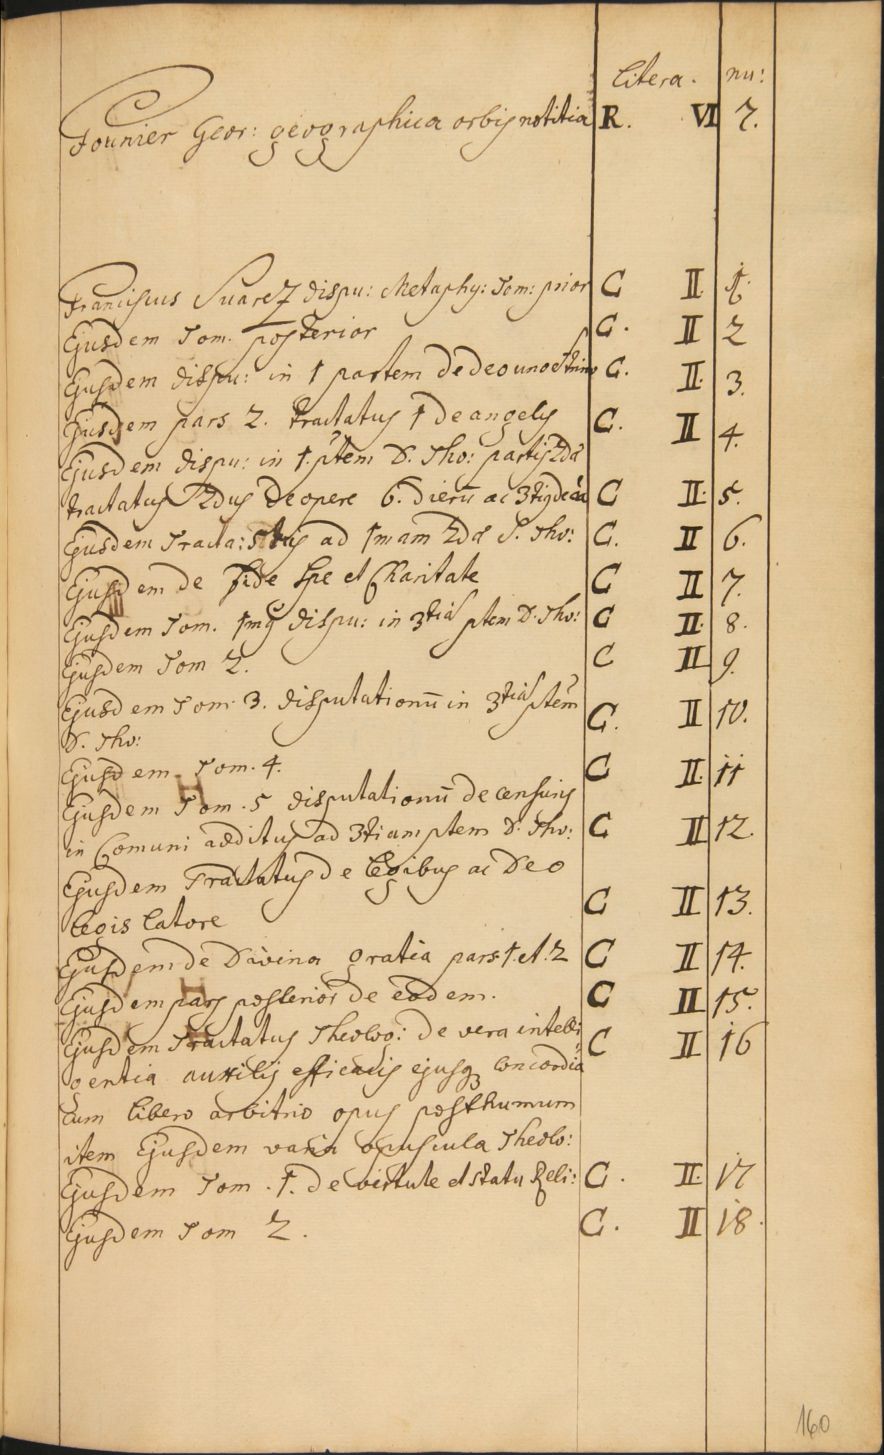 litera. nu:
Founier Geor: geographica orbis notitia R. VI 7.
Franciscus Suarez dispu: Metaphy: Tom: prior C II. 1.
Ejusdem Tom. posterior C. II 2
Ejusdem dispu: in 1 partem de deo uno et trino C. II. 3.
Ejusdem pars 2. tractatus 1 de angelis C. II 4.
Ejusdem dispu: in 1. ptem D. Tho: partis 2da
tractatus 2dus de opere 6. dierū ac 3tius de C II. 5.
Ejusdem Tracta: 5 ad 1mam 2dæ S. Tho: C. II 6.
Ejusdem de Fide Spe et Charitate C II 7.
Ejusdem Tom. 1mus dispu: in 3tiā ptem D. Tho: C II. 8.
Ejusdem Tom 2. C II 9.
Ejusdem Tom. 3. disputationū in 3tiā ptem C. II 10.
D. Tho:
Ejusdem Tom. 4. C II. 11
Ejusdem Tom. 5 disputationū de censuris
in Comuni additus ad 3tiam ptem D. Tho: C II 12.
Ejusdem Tractatus de legibus ac Deo
legis latore C II 13.
Ejusdem de Divina gratia pars 1 et. 2 C II 14.
Ejusdem pars posterior de eodem. C II 15.
Ejusdem Tractatus Theolog: de vera intelli C II 16
gentia auxilij efficacis ejusq concordiā
cum libero arbitrio opus posthumum
item Ejusdem varia opuscula Theolo:
Ejusdem Tom. 1. de virtute et statu Reli: C. II. 17
Ejusdem Tom 2. C. II 18.
160